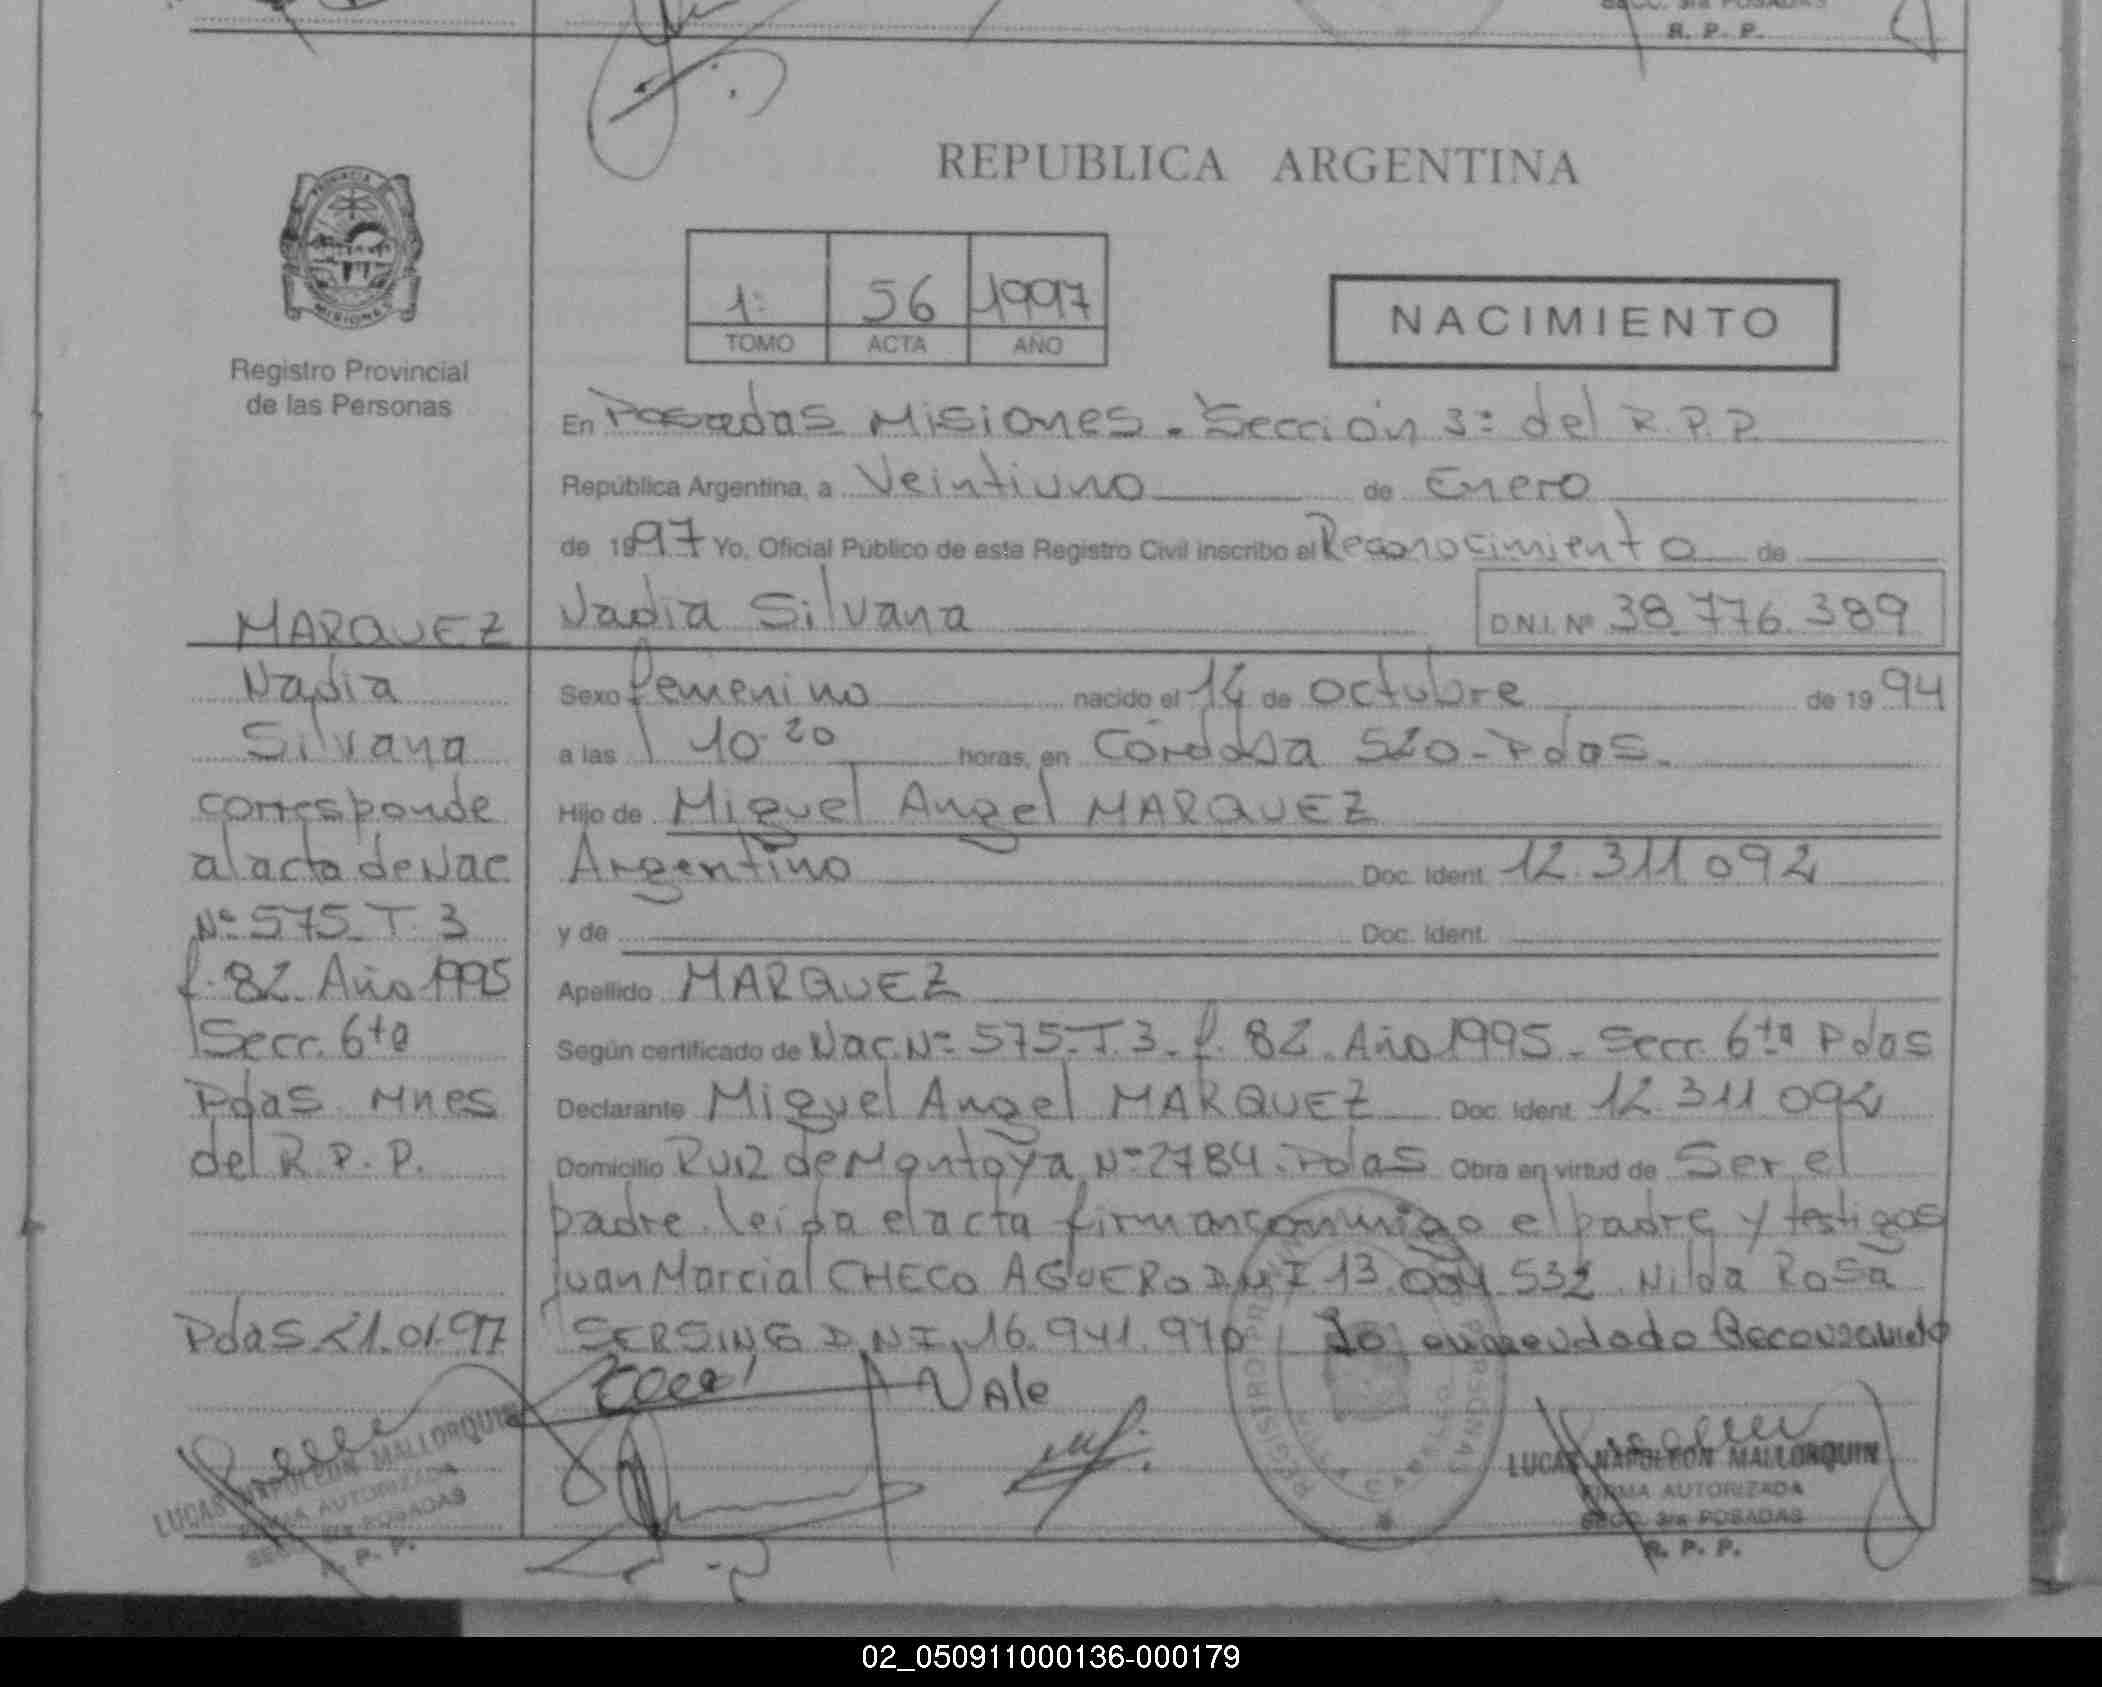 SECC. 3ra POSADAS
R. P. P.
REPUBLICA ARGENTINA
1º 56 1997
TOMO ACTA AÑO
NACIMIENTO
PROVINCIA
MISIONES
Registro Provincial
de las Personas
En Posadas Misiones. Sección 3ª del R.P.P
República Argentina, a Veintiuno de Enero
de 1997 Yo, Oficial Público de este Registro Civil inscribo el Reconocimiento de
Nadia Silvana D.N.I. Nº 38.776.389
Sexo femenino nacido el 14 de octubre de 1994
a las 10.20 horas, en Córdoba 520-Pdas.
Hijo de Miguel Angel MARQUEZ
Argentino Doc. Ident. 12.311.092
y de Doc. Ident.
Apellido MARQUEZ
Según certificado de Nac. Nº 575-T.3-f. 82. Año 1995. Secc. 6ta Pdas
Declarante Miguel Angel MARQUEZ Doc. Ident. 12.311.092
Domicilio Ruiz de Montoya Nº 2784. Pdas Obra en virtud de Ser el
padre. leida el acta firman conmigo el padre y testigos
Juan Marcial CHECO AGUERO D.N.I 13.004.532. Nilda Rosa
SERSING D.N.I. 16.941.970 Lo enmendado Reconocimiento
Vale
MARQUEZ
Nadia
Silvana
corresponde
al acta de Nac
Nº 575-T. 3
f. 82. Año 1995
Secc. 6ta
Pdas Mnes
del R.P.P.
Pdas 21.01.97
LUCAS NAPOLEON MALLORQUIN
FIRMA AUTORIZADA
SECC. 3ra POSADAS
R. P. P.
LUCAS NAPOLEON MALLORQUIN
FIRMA AUTORIZADA
SECC. 3ra POSADAS
R. P. P.
02_050911000136-000179